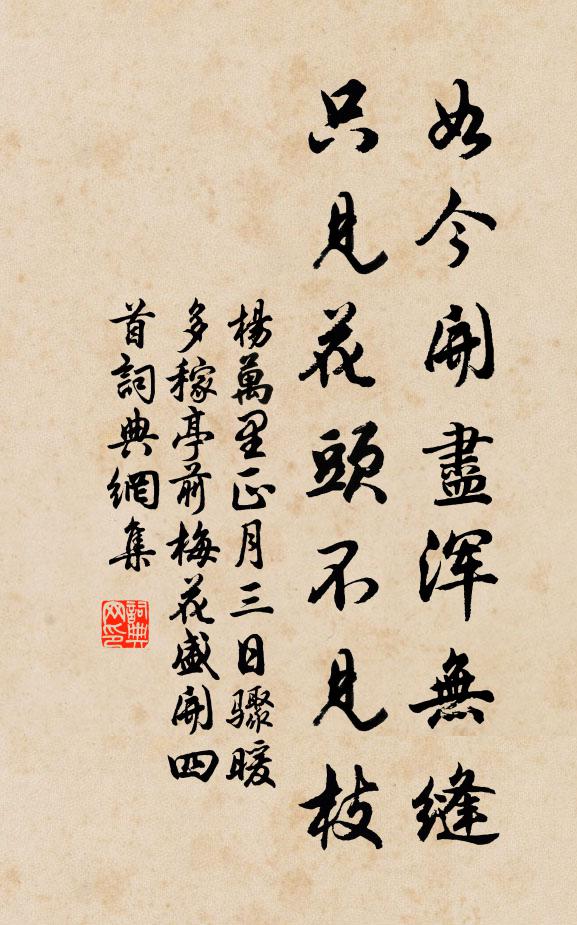 如今開盡渾無縫
只見花頭不見枝
楊萬里正月三日驟暖
多稼亭前梅花盛開四
首詞典網集
詞典网印